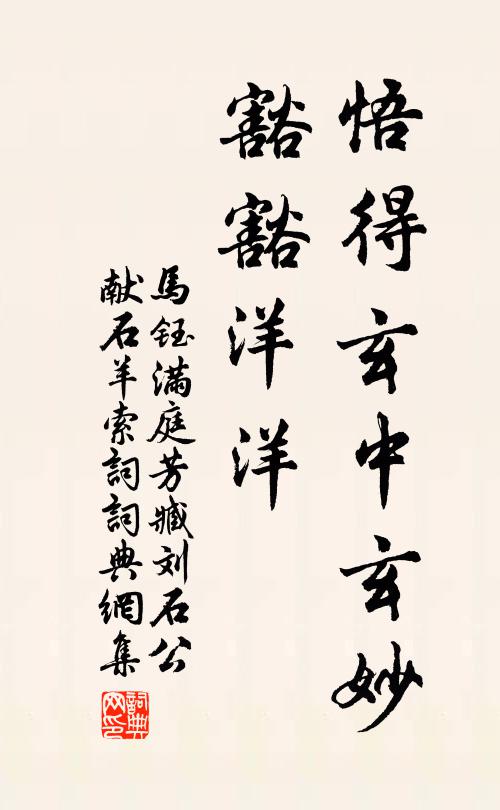 悟得玄中玄妙
豁豁洋洋
馬鈺滿庭芳臧刘石公
献石羊索詞詞典網集
詞典网印